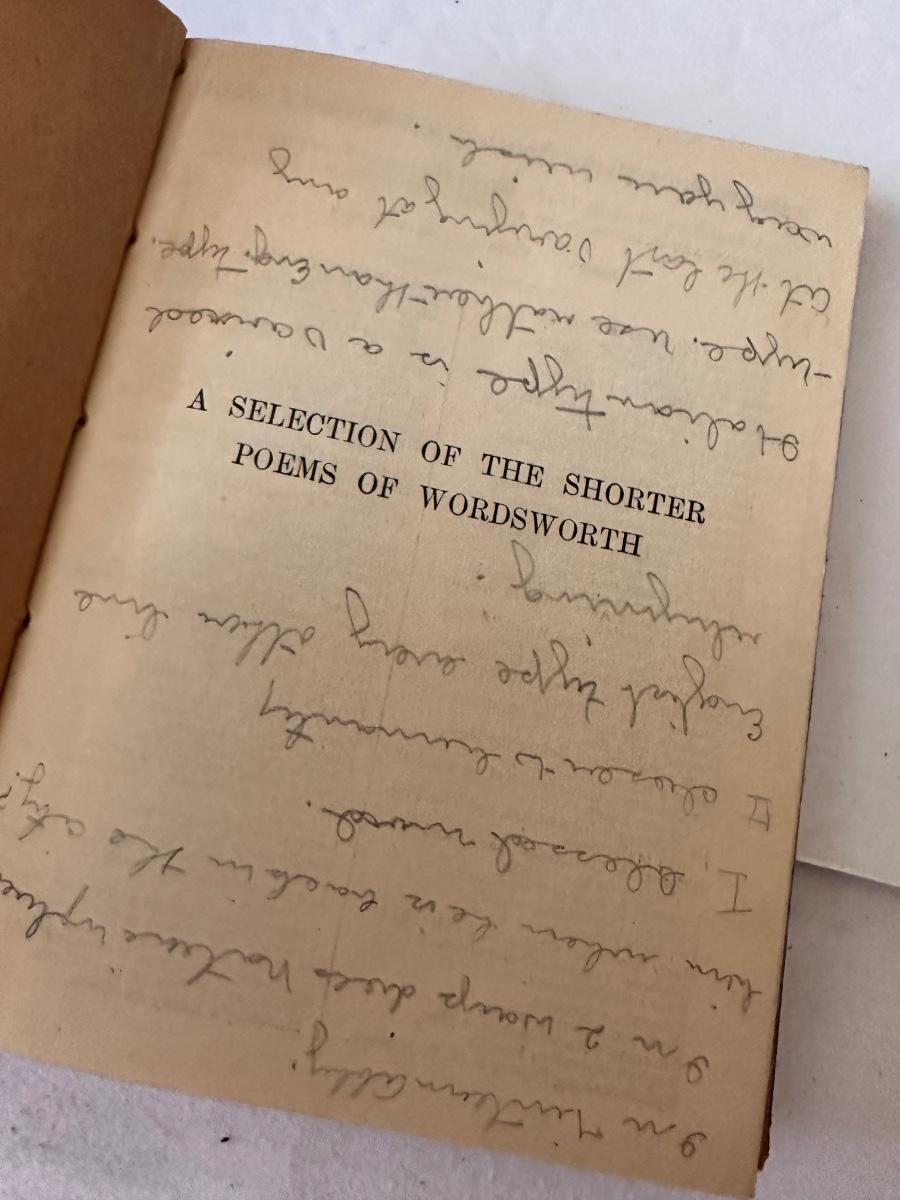 A SELECTION OF THE SHORTER
POEMS OF WORDSWORTH
In Tintern Abby:
In 2 ways does nature
him when he is back in the city?
I, blessed mood.
II to humanity
English type every other line
rhyming.
Italian type is a varied
-type. Use rather than Eng. type.
at the last varying at any
way you wish.